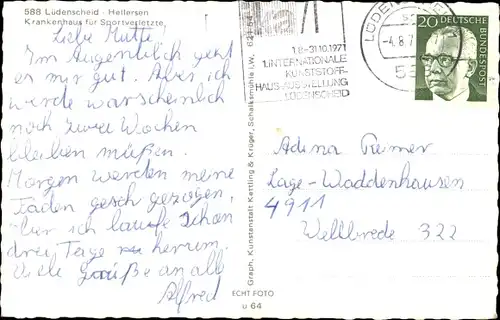 588 Lüdenscheid - Hellersen
Krankenhaus für Sportverletzte
Liebe Mutti!
Im Augenblick geht
es mir gut. Aber ich
werde warscheinlich
noch zwei Wochen
bleiben müßen.
Morgen werden meine
Fäden gezogen,
ich laufe schon
drei Tage herum.
Viele Grüße an all
Alfred
Graph. Kunstanstalt Kettling & Krüger, Schalksmühle i.W.
ECHT FOTO
u 64
1.8.-31.10.1971
1. INTERNATIONALE
KUNSTSTOFF-
HAUS-AUSSTELLUNG
LÜDENSCHEID
-4.8.7
20
DEUTSCHE
BUNDESPOST
Lage-Waddenhausen
4911
Wellbrede 322